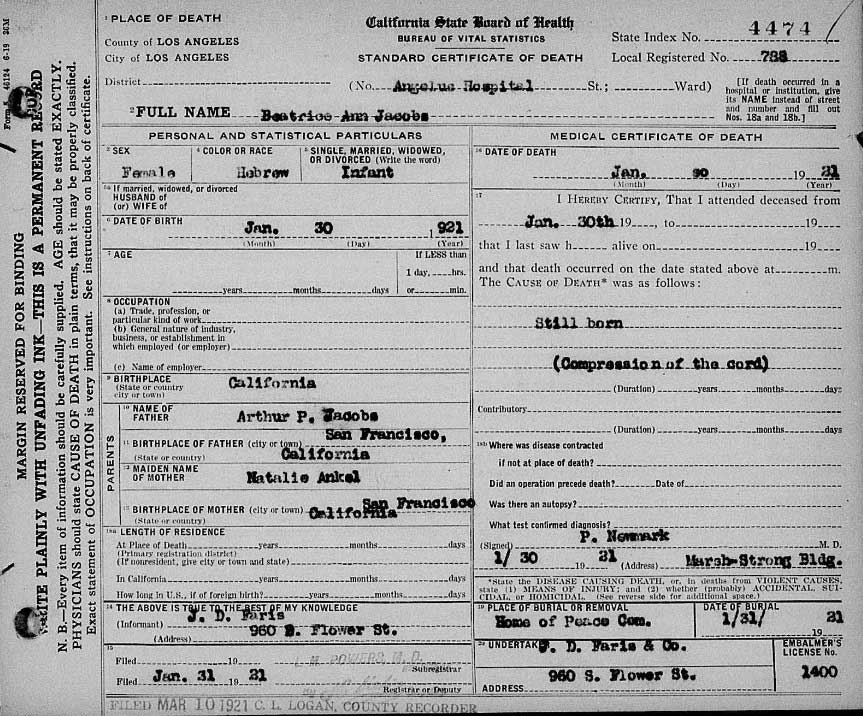 Form V. S. 46124 6-19 30M
MARGIN RESERVED FOR BINDING
WRITE PLAINLY WITH UNFADING INK—THIS IS A PERMANENT RECORD
N. B.—Every item of information should be carefully supplied. AGE should be stated EXACTLY.
PHYSICIANS should state CAUSE OF DEATH in plain terms, that it may be properly classified.
Exact statement of OCCUPATION is very important. See instructions on back of certificate.
1 PLACE OF DEATH
County of LOS ANGELES
City of LOS ANGELES
California State Board of Health
BUREAU OF VITAL STATISTICS
STANDARD CERTIFICATE OF DEATH
State Index No. 4474
Local Registered No. 788
District
(No. Angelus Hospital St.; Ward)
[If death occurred in a
hospital or institution, give
its NAME instead of street
and number and fill out
Nos. 18a and 18b.]
2 FULL NAME Beatrice Ann Jacobs
PERSONAL AND STATISTICAL PARTICULARS
3 SEX
Female
4 COLOR OR RACE
Hebrew
5 SINGLE, MARRIED, WIDOWED,
OR DIVORCED (Write the word)
Infant
5a If married, widowed, or divorced
HUSBAND of
(or) WIFE of
6 DATE OF BIRTH
Jan. 30 1921
(Month) (Day) (Year)
7 AGE
years months days
If LESS than
1 day, hrs.
or min.
8 OCCUPATION
(a) Trade, profession, or
particular kind of work
(b) General nature of industry,
business, or establishment in
which employed (or employer)
(c) Name of employer
9 BIRTHPLACE
(State or country
city or town)
California
PARENTS
10 NAME OF
FATHER
Arthur P. Jacobs
11 BIRTHPLACE OF FATHER (city or town) San Francisco,
(State or country) California
12 MAIDEN NAME
OF MOTHER
Natalie Ankel
13 BIRTHPLACE OF MOTHER (city or town) San Francisco
California
(State or country)
18a LENGTH OF RESIDENCE
At Place of Death years months days
(Primary registration district)
(If nonresident, give city or town and state)
In California years months days
How long in U.S., if of foreign birth? years months days
14 THE ABOVE IS TRUE TO THE BEST OF MY KNOWLEDGE
(Informant) J. D. Faris
(Address) 960 S. Flower St.
15
Filed 19 L. M. POWERS, M.D.
Subregistrar
Filed Jan. 31 19 21
Registrar or Deputy
MEDICAL CERTIFICATE OF DEATH
16 DATE OF DEATH
Jan. 30 19 21
(Month) (Day) (Year)
17
I HEREBY CERTIFY, That I attended deceased from
Jan. 30th 19 , to 19
that I last saw h alive on 19
and that death occurred on the date stated above at m.
The CAUSE OF DEATH* was as follows:
Still born
(Compression of the cord)
(Duration) years months days
Contributory
(Duration) years months days
18b Where was disease contracted
if not at place of death?
Did an operation precede death? Date of
Was there an autopsy?
What test confirmed diagnosis?
(Signed) P. Newmark M. D.
1/ 30 19 21 (Address) Marsh-Strong Bldg.
*State the DISEASE CAUSING DEATH, or, in deaths from VIOLENT CAUSES,
state (1) MEANS OF INJURY; and (2) whether (probably) ACCIDENTAL, SUI-
CIDAL, or HOMICIDAL. (See reverse side for additional space.)
19 PLACE OF BURIAL OR REMOVAL
Home of Peace Cem.
DATE OF BURIAL
1/31/ 19 21
20 UNDERTAKER J. D. Faris & Co.
960 S. Flower St.
ADDRESS
EMBALMER'S
LICENSE No.
1400
FILED MAR 10 1921 C. L. LOGAN, COUNTY RECORDER